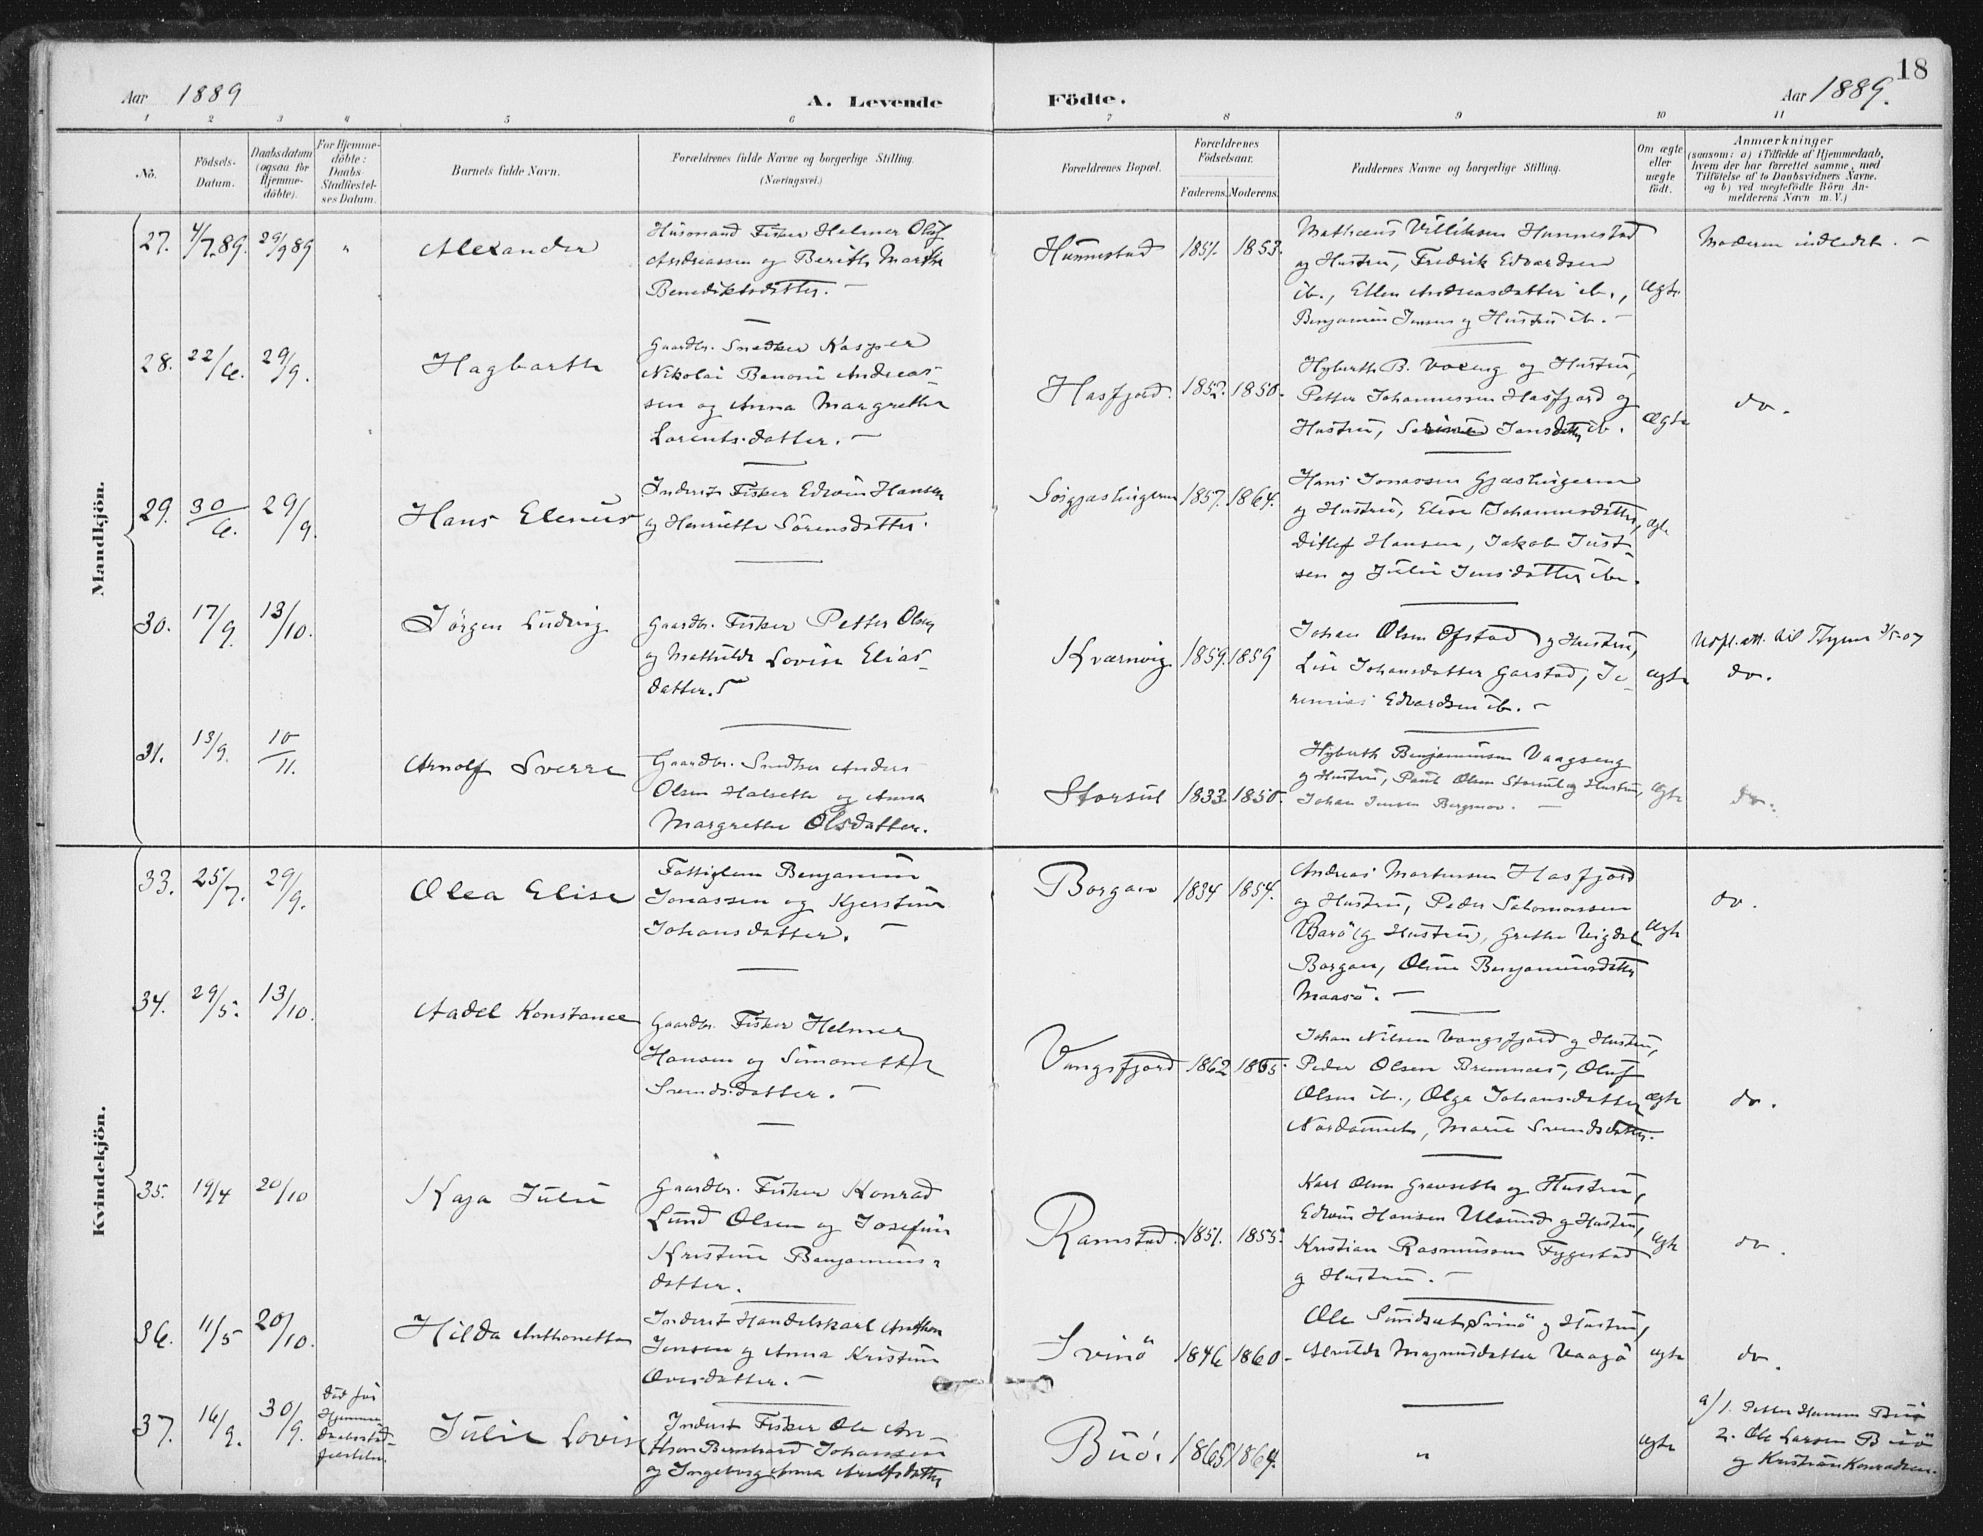 18
Aar 1889
A. Levende
Födte.
Aar 1889.
1 2 3 4 5 6 7 8 9 10 11
No.
Födsels-
Datum.
Daabsdatum
(ogsaa for
Hjemme-
döbte).
For Hjemme-
döbte:
Daabs
Stadfæstel-
ses Datum.
Barnets fulde Navn.
Forældrenes fulde Navne og borgerlige Stilling.
(Næringsvei.)
Forældrenes Bopæl.
Forældrenes
Födselsaar.
Faderens. Moderens.
Faddernes Navne og borgerlige Stilling.
Om ægte
eller
uægte
födt.
Anmærkninger
(saasom: a) i Tilfælde af Hjemmedaab,
hvem der har forrettet samme, med
Tilföielse af to Daabsvidners Navne.
og b) ved uægtefödte Börn An-
melderens Navn m. V.)
Mandkjön.
27. 4/7.89. 29/9 89 " Alexander
Husmand Fisker Helmer Oluf
Andreassen og Berith Marthe
Benediktsdatter. —
Hunnestad 1851. 1853.
Matheus Villiksen Hunnestad
og Hustru, Fredrik Edvardsen
ib., Ellen Andreasdatter ib.,
Benjamin Jensen og Hustru ib. —
Ægte
Moderen indledet. —
28. 22/6. 29/9. Hagbarth
Gaardbr. Snedker Kasper
Nikolai Benoni Andreas-
sen og Anna Margrethe
Lorentsdatter. —
Hasfjord. 1852. 1850.
Hyberth B. Voxeng og Hustru,
Petter Johannessen Hasfjord og
Hustru, Serine Jensdatter ib.
Ægte
do.
29. 30/6. 29/9. Hans Elenus
Inderst Fisker Edvin Hansen
og Henriette Sörensdatter.
Sörgjæslingerne 1857. 1864.
Hans Jonassen Gjæslingerne
og Hustru, Elise Johannesdatter,
Ditlef Hansen, Jakob Just-
sen og Julie Jensdatter ib.
ægte
30. 17/9. 13/10. Jörgen Ludvig
Gaardbr. Fisker Petter Olsen
og Mathilde Lovise Elias-
datter.
Kværnvig 1859. 1859
Johan Olsen Ofstad og Hustru,
Lise Johansdatter Garstad, Je-
remias Edvardsen ib. —
ægte
Udfl. att. til 7/5-07
do.
31. 13/9. 10/11. Arnolf Sverre
Gaardbr. Snedker Anders
Olsen Halseth og Anna
Margrethe Olsdatter.
Storsul 1833 1850.
Hyberth Benjaminsen Vaagseng
og Hustru, Paul Olsen Storsul og Hustru,
Johan Jensen Bergsnov. —
Ægte
do.
Kvindekjön.
33. 25/7. 29/9. Olea Elise
Fattiglem Benjamin
Jonassen og Kjerstine
Johansdatter. —
Borgan 1834 1854.
Andreas Martinssen Hasfjord
og Hustru, Peder Salomonsen
Barö og Hustru, Grethe Vigdal
Borgan, Oline Benjaminsdatter
Maasö. —
Ægte
do.
34. 29/5. 13/10. Aadel Konstance
Gaardbr. Fisker Helmer
Hansen og Simonette
Svendsdatter. —
Vangsfjord 1862 1865.
Johan Nilsen Vangsfjord og Hustru,
Peder Olsen Bremnes, Oluf
Olsen ib., Olga Johansdatter
Nordaunet, Marie Svendsdatter.
Ægte
do.
35. 19/4 20/10 Kaja Julie
Gaardbr. Fisker Konrad
Lund Olsen og Josefine
Kristine Benjamins-
datter.
Ramstad. 1851. 1855.
Karl Olsen Gravseth og Hustru,
Edvin Hansen Ulsund og Hustru,
Kristian Rasmussen Fyggestad
og Hustru. —
Ægte
do.
36. 11/5 20/10. Hilda Anthonette
Inderst Handelskarl Anthon
Jensen og Anna Kristine
Ovesdatter. —
Svinö 1846 1860.
Ole Sundset, Svinö og Hustru,
Alvilde Magnusdatter Vaagö
ægte
do.
37. 16/9. 30/9. Julie Lovise
Död før
Hjemme-
daabsstad-
fæstelse.
Inderst Fisker Ole An-
thon Bernhard Johansen
og Ingeborg Anna Arnlfsdatter
Buö. 1865 1864.
"
ægte
a/ 1. Petter Hansen Buö
2. Ole Larsen Buö
og Kristian Konradsen.